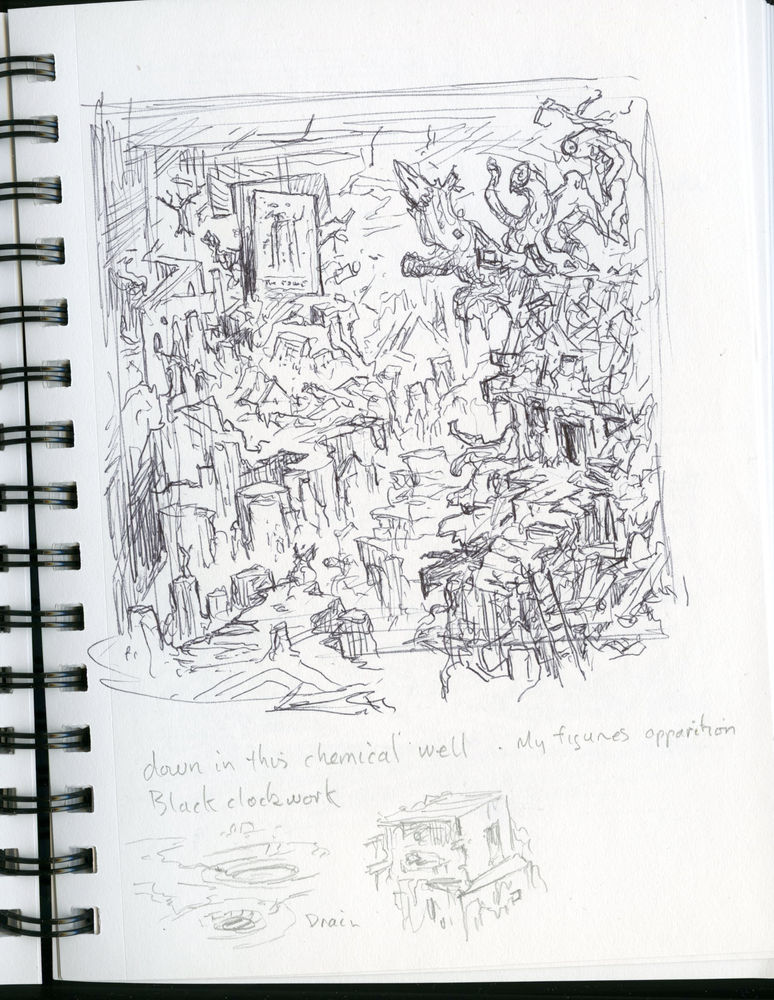 down in this chemical well . My figures apparition
Black clockwork
Drain